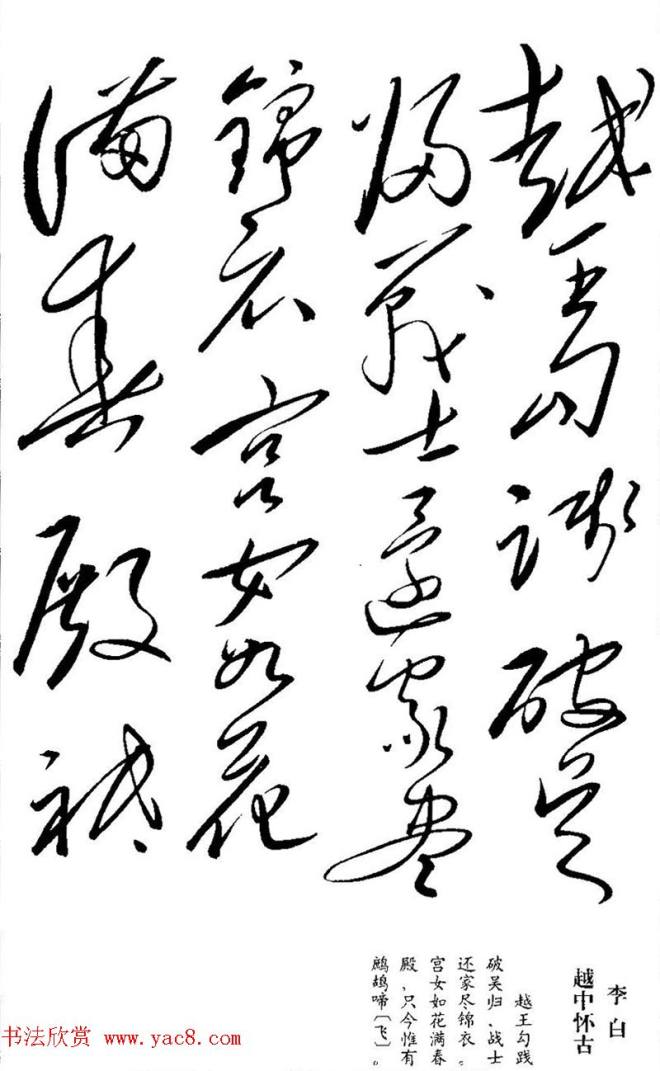 越王勾踐破吳
歸戰士還家盡
錦衣宮女如花
滿春殿祇
李白
越中怀古
越王勾践
破吴归、战士
还家尽锦衣。
宫女如花满春
殿,只今惟有
鹧鸪啼〔飞〕。
书法欣赏 www.yac8.com